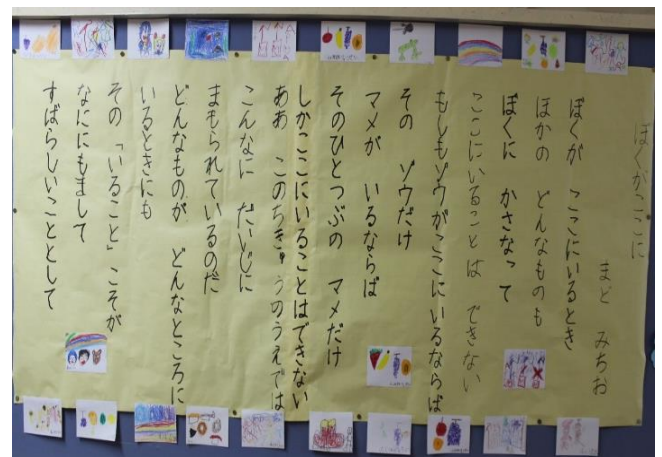 ぼくがここに
まど みちお
ぼくが ここにいるとき
ほかの どんなものも
ぼくに かさなって
ここにいることは できない
もしもゾウがここにいるならば
その ゾウだけ
マメが いるならば
そのひとつぶの マメだけ
しかここにいることはできない
ああ このちきゅうのうえでは
こんなに だいじに
まもられているのだ
どんなものが どんなところに
いるときにも
その「いること」こそが
なににもまして
すばらしいこととして